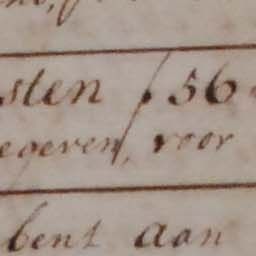 sten / 56
egeven, voor
bent aan